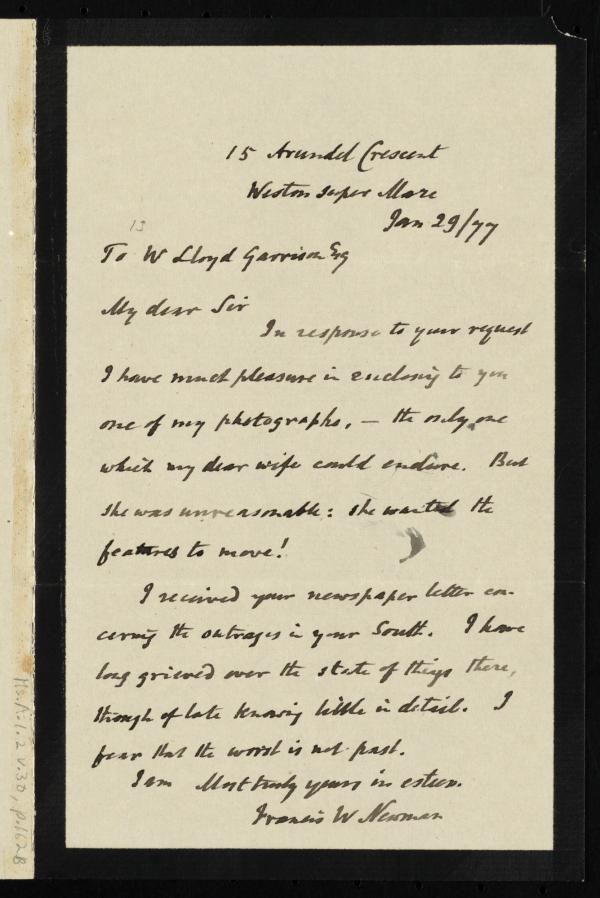 15 Arundel Crescent
Weston super Mare
Jan 29/77
13
To W Lloyd Garrison Esq
My dear Sir
In response to your request
I have much pleasure in enclosing to you
one of my photographs, — the only one
which my dear wife could endure. But
she was unreasonable: she wanted the
features to move!
I received your newspaper letter con-
cerning the outrages in your South. I have
long grieved over the state of things there,
though of late knowing little in detail. I
fear that the worst is not past.
I am Most truly yours in esteem.
Francis W Newman
Ms.A.1.2 v.30, p.162B